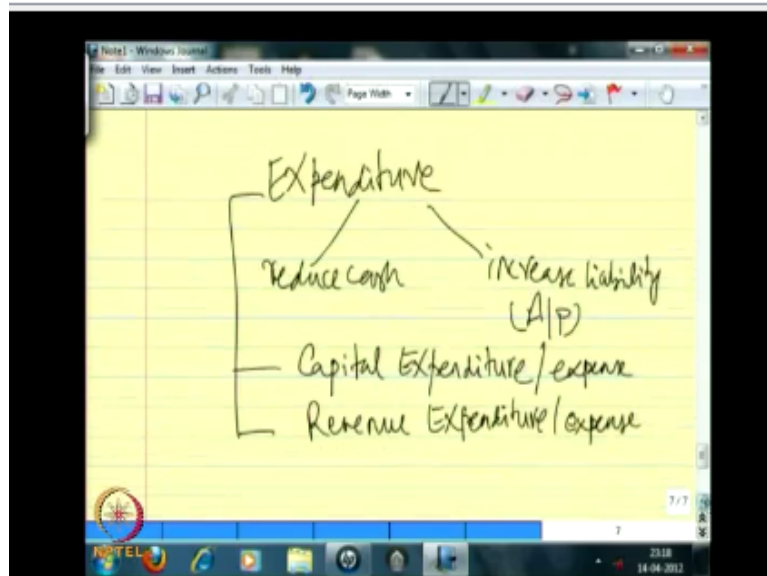 Note1 - Windows Journal
File Edit View Insert Actions Tools Help
Page Width
Expenditure
reduce cash increase liability
(A/P)
Capital Expenditure/expense
Revenue Expenditure/expense
7/7
7
NPTEL
23:18
14-04-2012